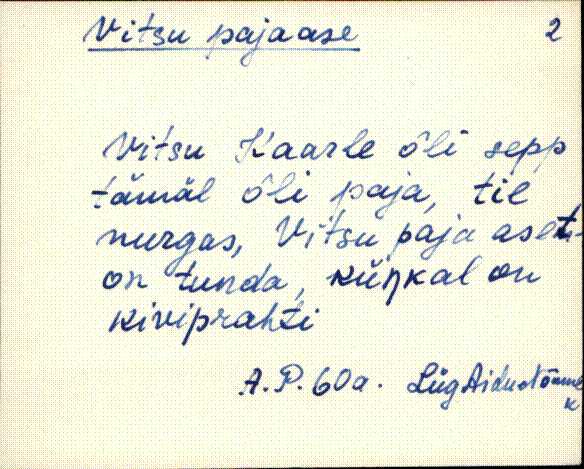 Vitsu pajaase
2
Vitsu Kaarle õli sepp
tämäl õli paja, tie
nurgas, Vitsu paja aset-
on tunda, küŋkal on
kiviprahti
A.P. 60a. Lüg Aidu
k